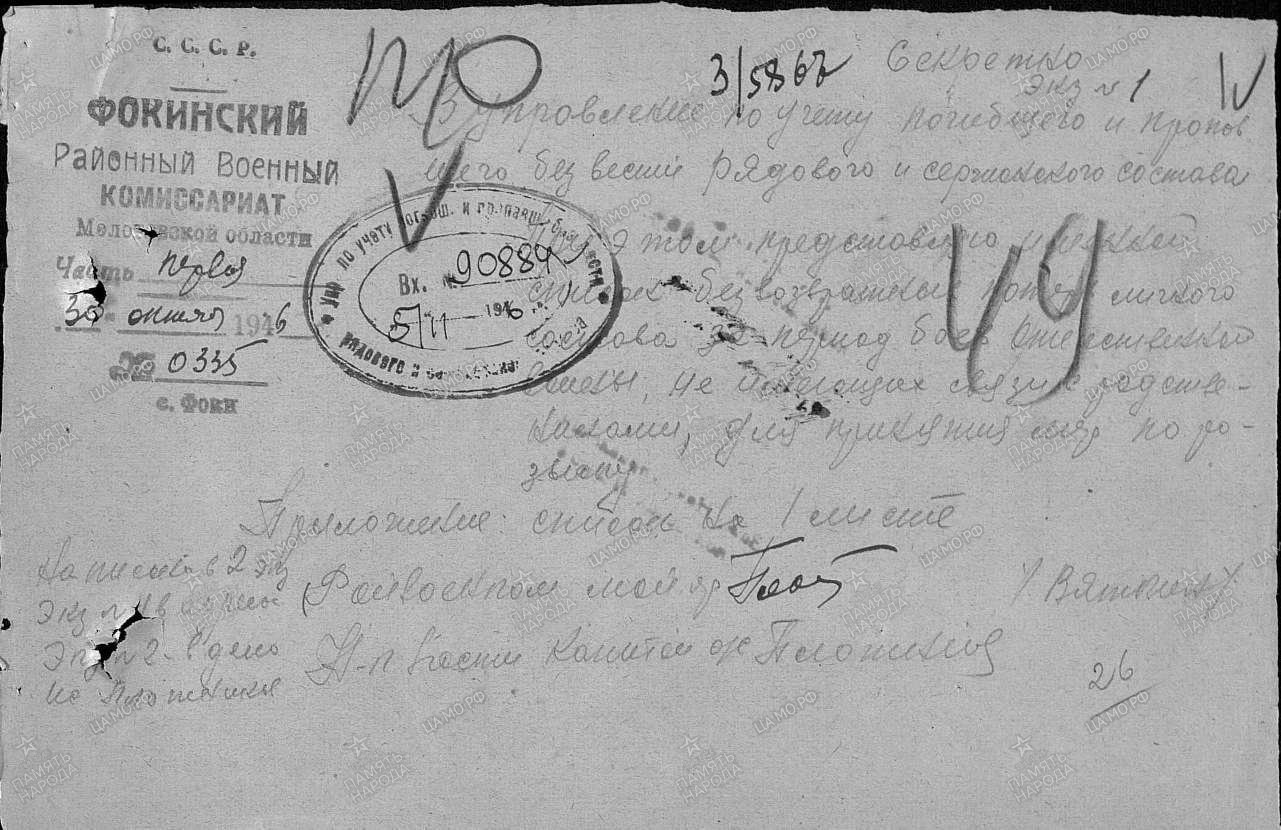 С. С. С. Р.
ФОКИНСКИЙ
Районный Военный
КОМИССАРИАТ
Молотовской области
Часть первая
30 октября 1946
№ 0335
с. Фоки
3/5867
Секретно
Экз № 1
В управление по учету погибшего и пропав
шего без вести рядового и сержанского состава
Упр. по учету погибш. и пропавш. без вести
рядового и сержанск. состава
Вх. № 90884
5/11 1946 г.
При этом представляю именной
список безвозвратных потерь личного
состава за период боев Отечественной
войны, не имеющих связи с родстве-
никами, для принятия мер по ро-
зыску
Приложение: список на 1 листе
Написан в 2 экз
Экз № 1 в
Экз № 2 - в дело
Исп Плотников
Райвоенком майор
/Вяткин/
Н-к 1 части капитан Плотников
26
ПАМЯТЬ НАРОДА
ЦАМО.РФ